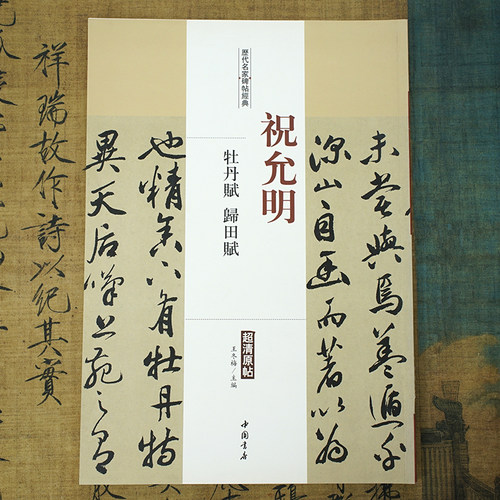 歷代名家碑帖經典
祝允明
牡丹賦 歸田賦
超清原帖
王冬梅/主編
中国書店
未嘗與焉蓋遁乎
深山自幽而著以為
也精舍下有牡丹特
異天后嘆上苑之有
祥瑞故作詩以紀其實